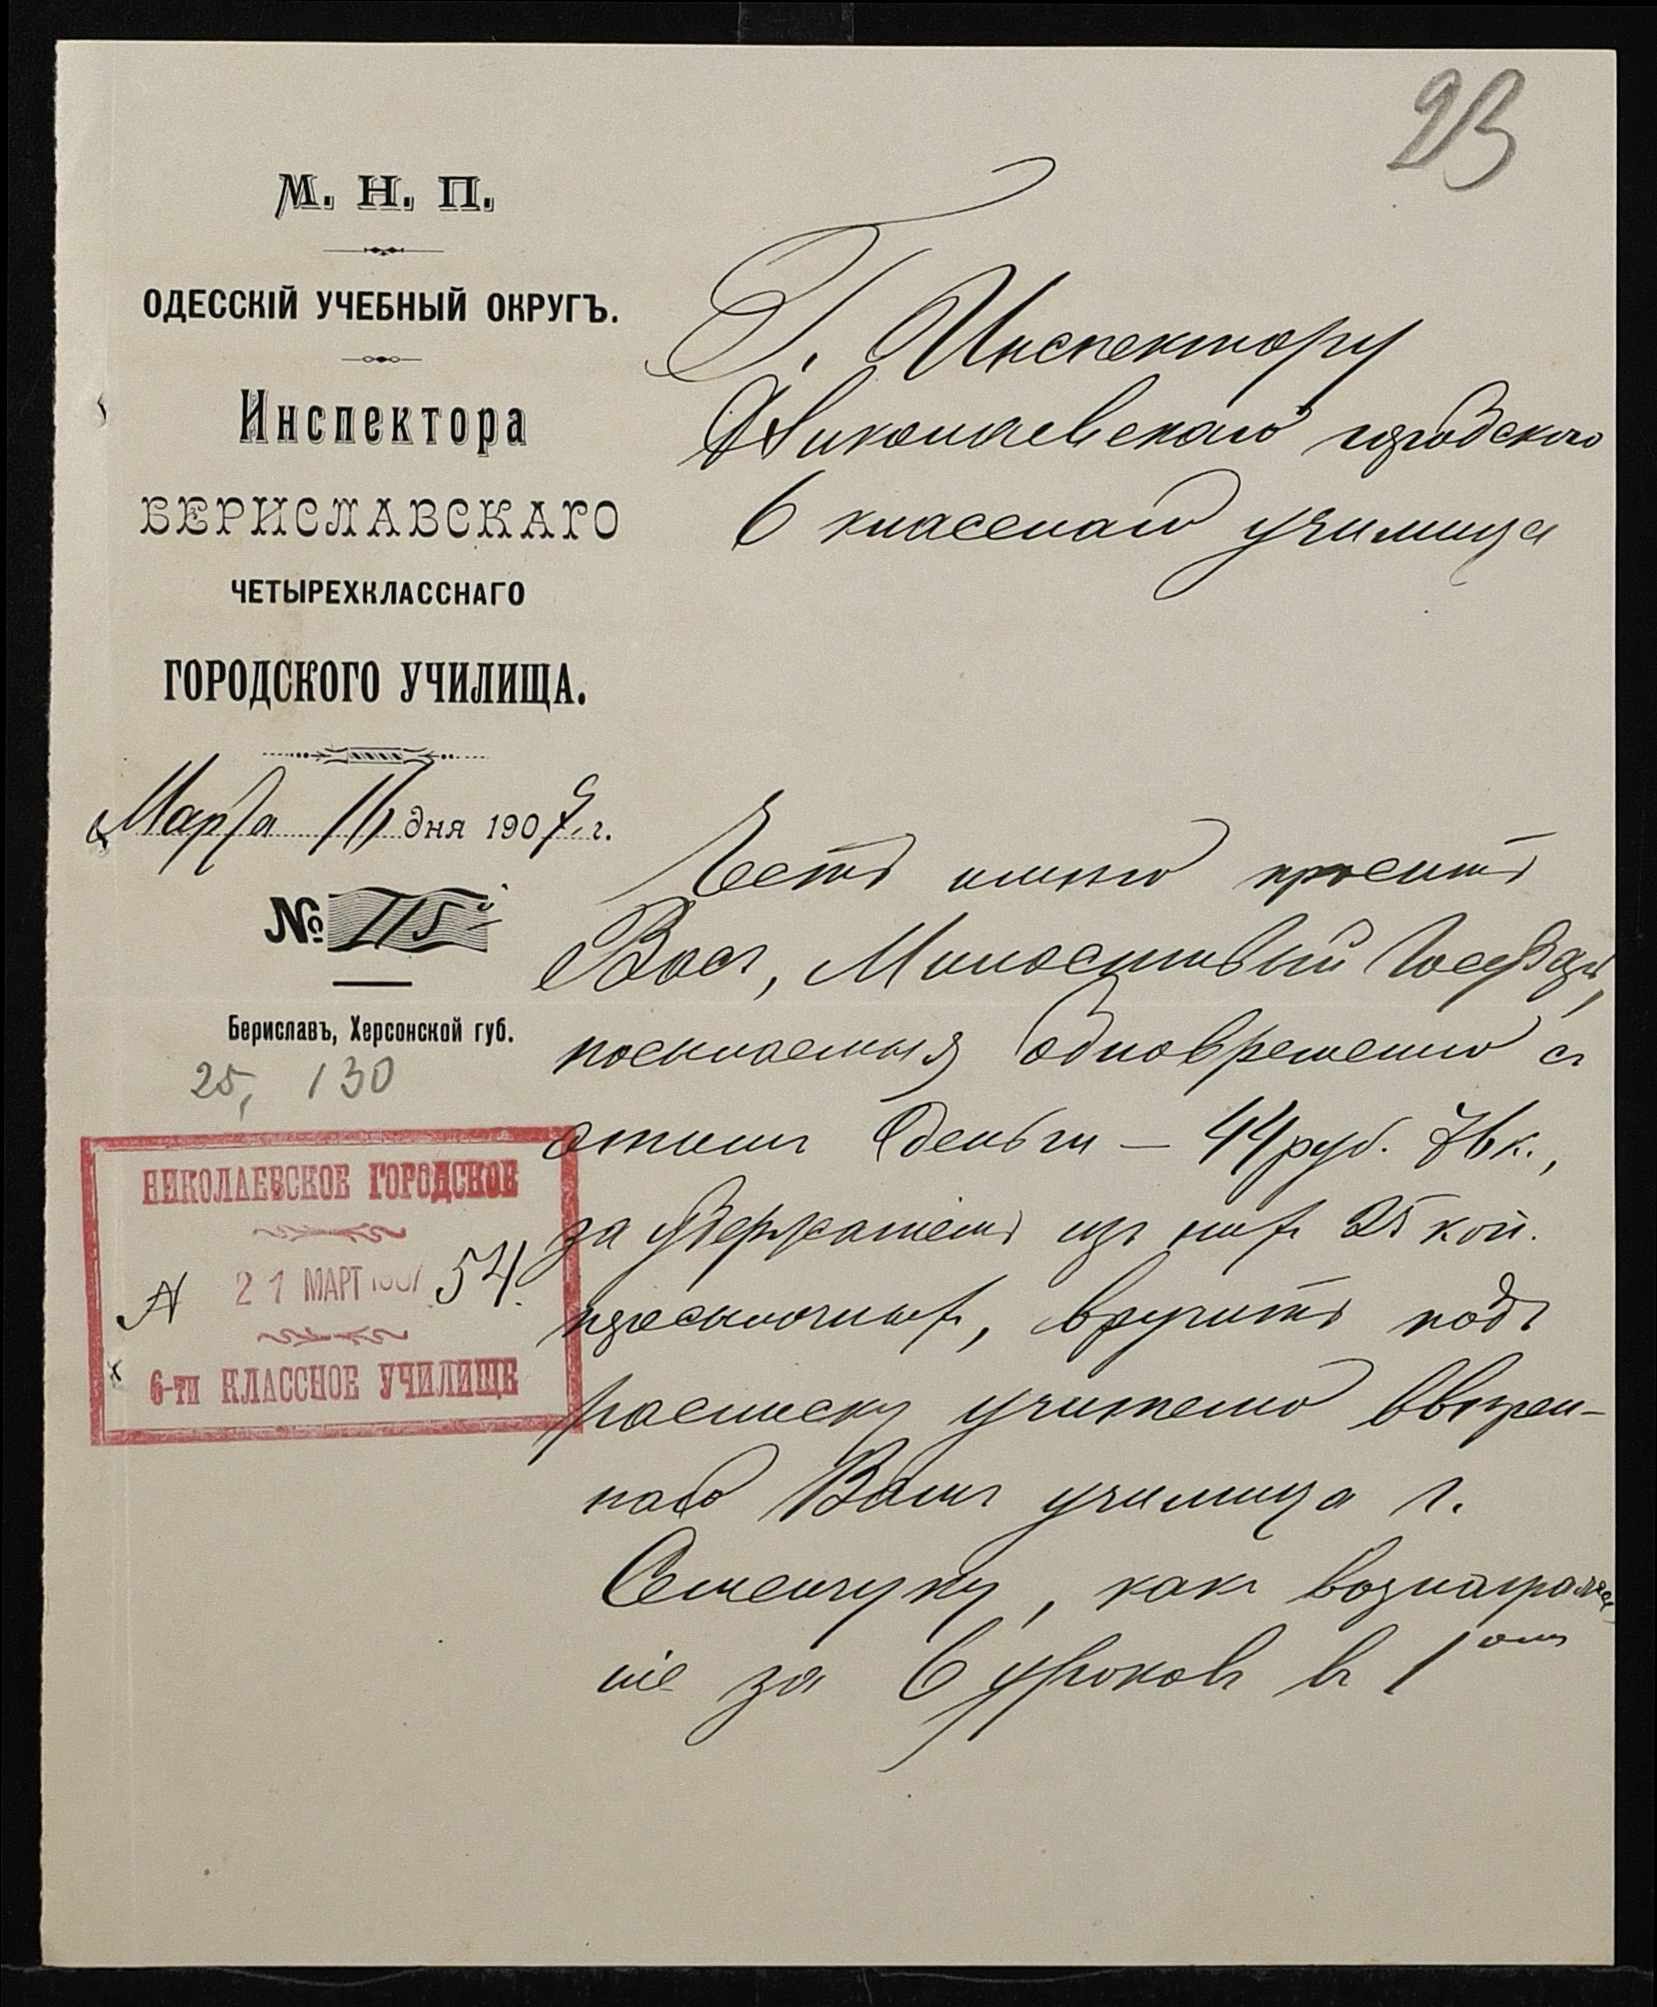 23
М. Н. П.
ОДЕССКІЙ УЧЕБНЫЙ ОКРУГЪ.
Инспектора
БЕРИСЛАВСКАГО
ЧЕТЫРЕХКЛАССНАГО
ГОРОДСКОГО УЧИЛИЩА.
Марта 16 дня 1907 г.
№ 115
Бериславъ, Херсонской губ.
25, 130
НИКОЛАЕВСКОЕ ГОРОДСКОЕ
N 21 МАРТ 1907 54.
6-ти КЛАССНОЕ УЧИЛИЩЕ
Г. Инспектору
Николаевскаго городского
6 класснаго училища
Честь имѣю просить
Васъ, Милостивый Государь,
посылаемыя одновременно съ
этимъ деньги — 44 руб. 76 к.,
за удержаніемъ изъ нихъ 25 коп.
пересылочныхъ, вручить подъ
расписку учителю ввѣрен-
наго Вамъ училища г.
Семенчуку, какъ вознагражде
ніе за 6 уроковъ въ 1омъ